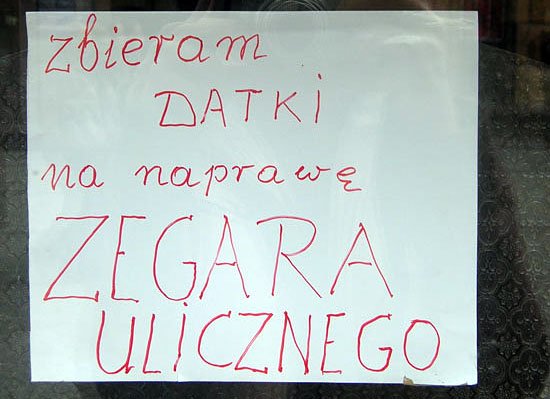 zbieram
DATKi
na naprawę
ZEGARA
ULiCZNEGO